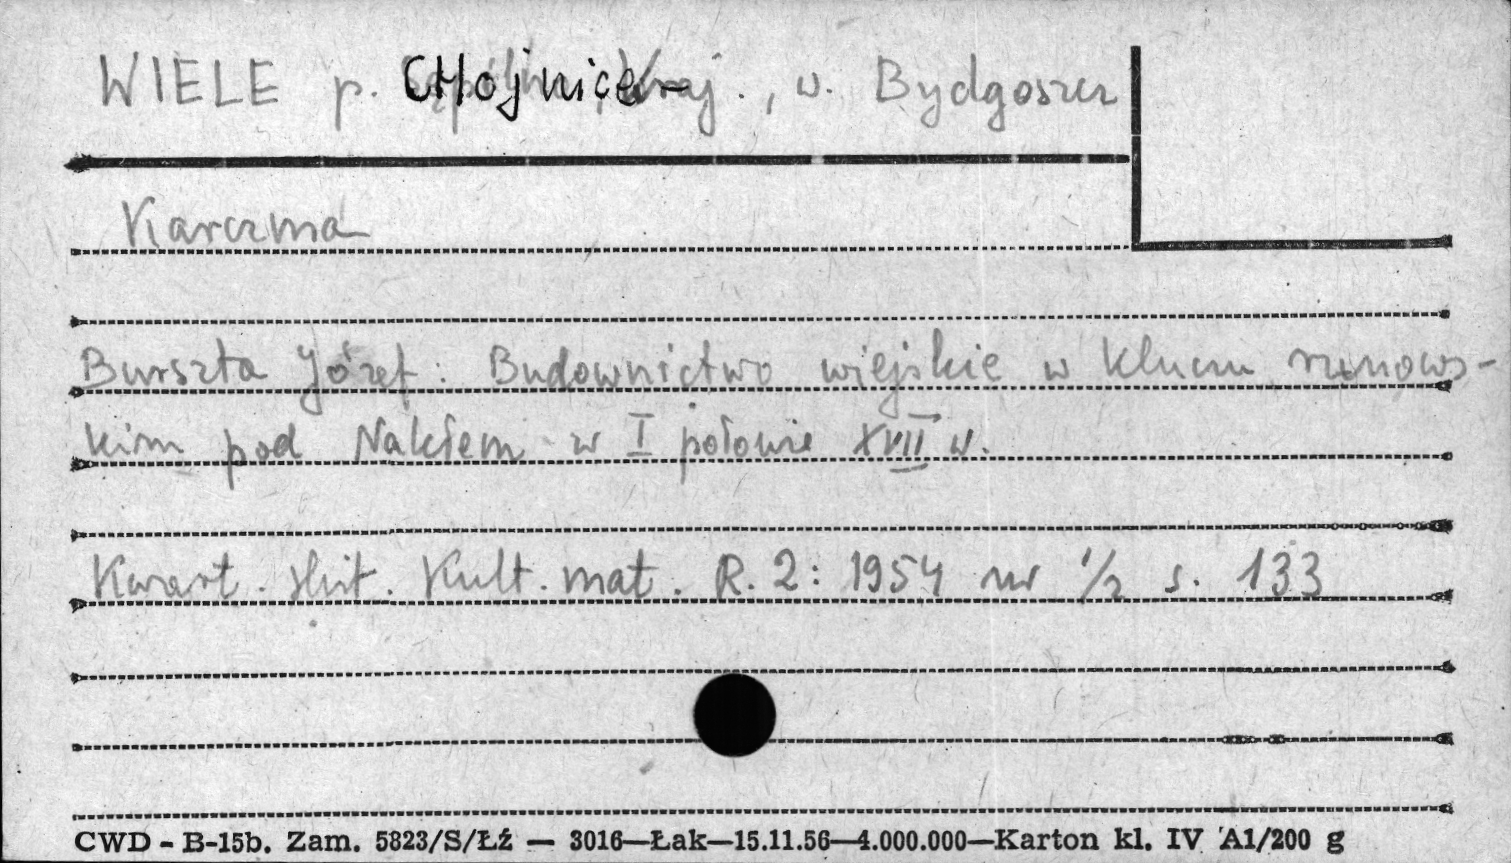 WIELE p. CHojnice, w. Bydgoszcz
Karczma
Burszta Józef: Budownictwo wiejskie w kluczu runows-
kim pod Nakłem w I połowie XVII w.
Kwart. Hist. Kult. mat. R. 2: 1954 nr 1/2 s. 133
CWD - B-15b. Zam. 5823/S/Łź — 3016—Łak—15.11.56—4.000.000—Karton kl. IV A1/200 g